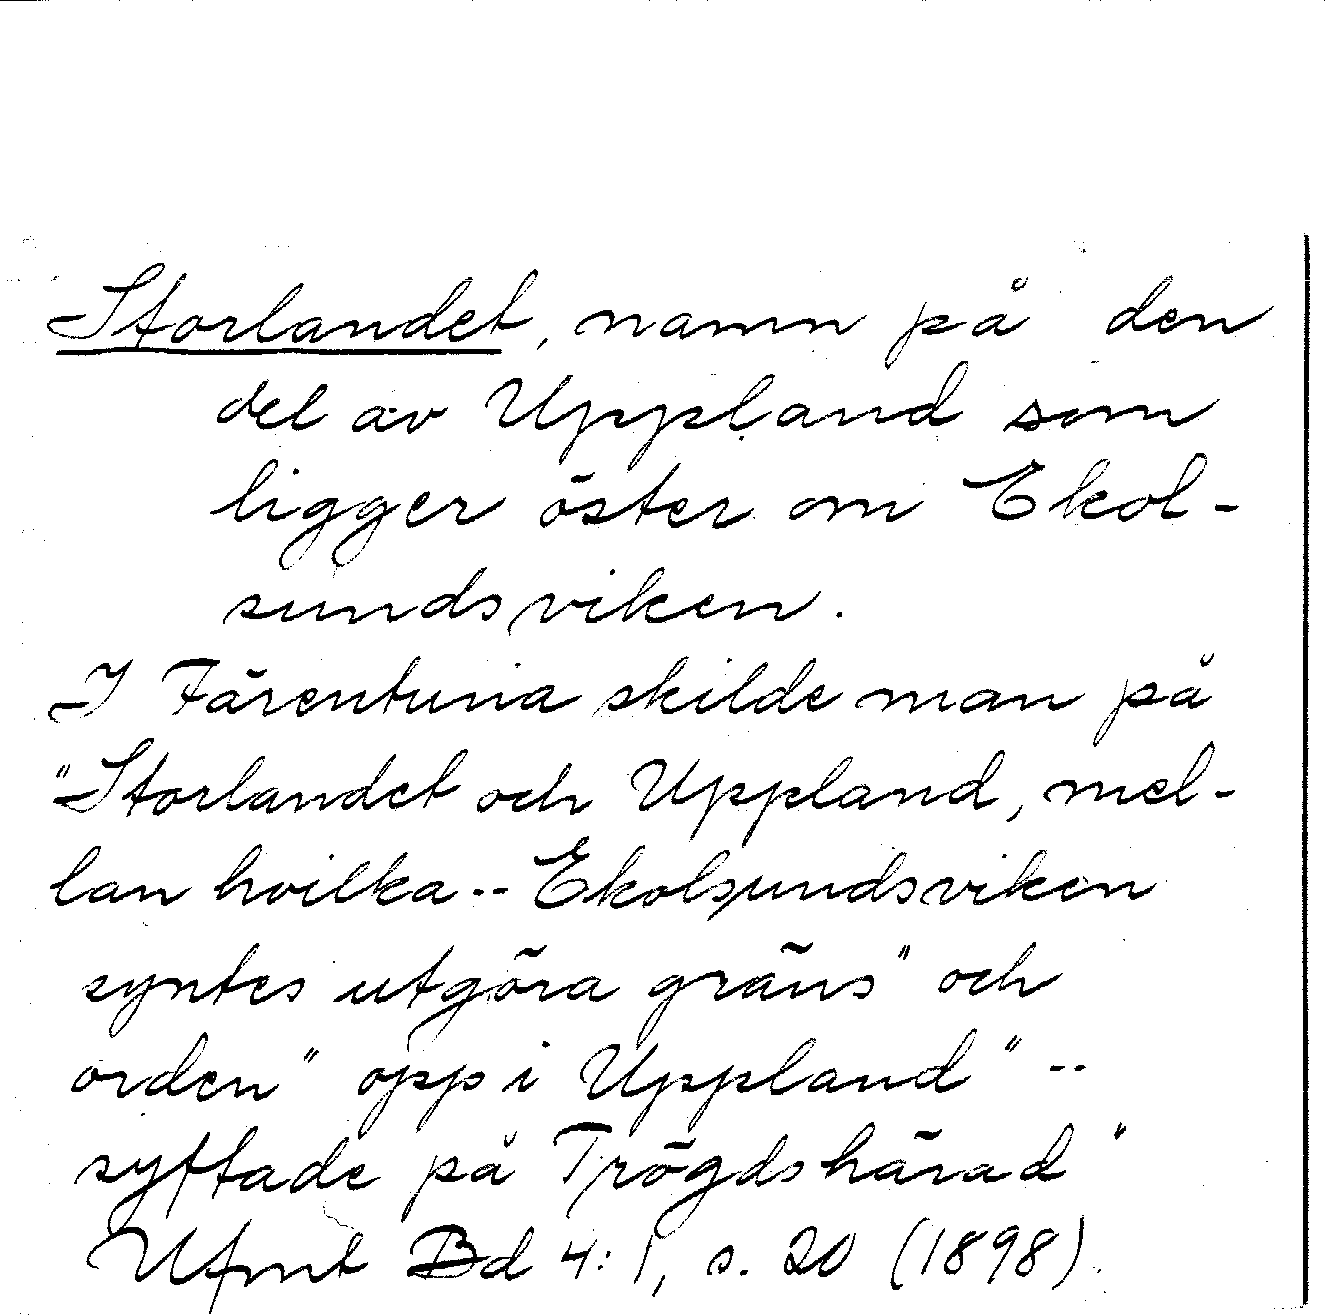 Storlandet, namn på den
del av Uppland som
ligger öster om Ekol-
sundsviken.
I Färentuna skilde man på
"Storlandet och Uppland, mel-
lan hvilka -- Ekolsundsviken
syntes utgöra gräns" och
orden "opp i Uppland" --
syftade på Trögds härad"
Ufmt Bd 4:1, s. 20 (1898).